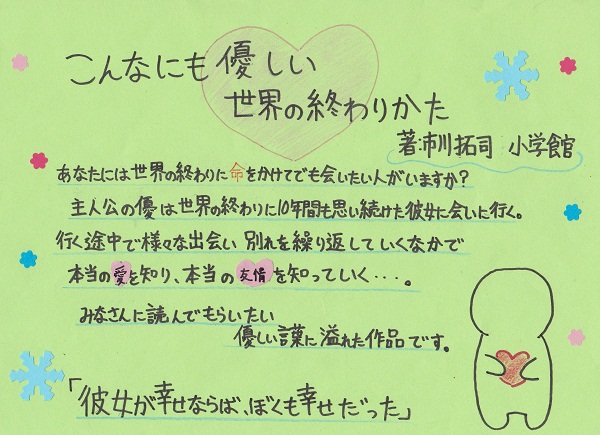 こんなにも優しい
世界の終わりかた
著:市川拓司 小学館
あなたには世界の終わりに命をかけてでも会いたい人がいますか?
主人公の優は世界の終わりに10年間も思い続けた彼女に会いに行く。
行く途中で様々な出会い 別れを繰り返していくなかで
本当の愛を知り、本当の友情を知っていく・・・。
みなさんに読んでもらいたい
優しい言葉に溢れた作品です。
「彼女が幸せならば、ぼくも幸せだった」